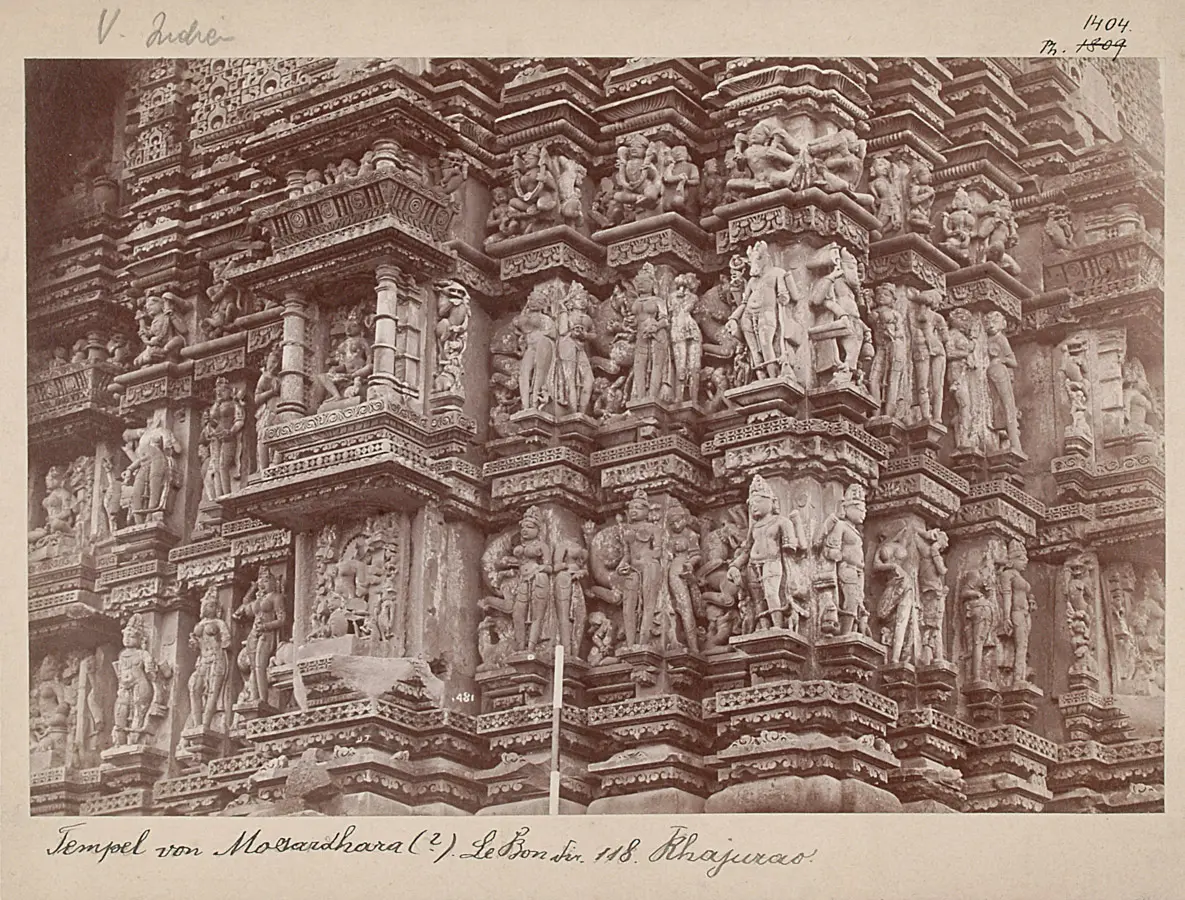 V. Indien
1404.
Ph. 1809
1481
Tempel von Mosardhara (?). Le Bon fig. 118. Khajurao.